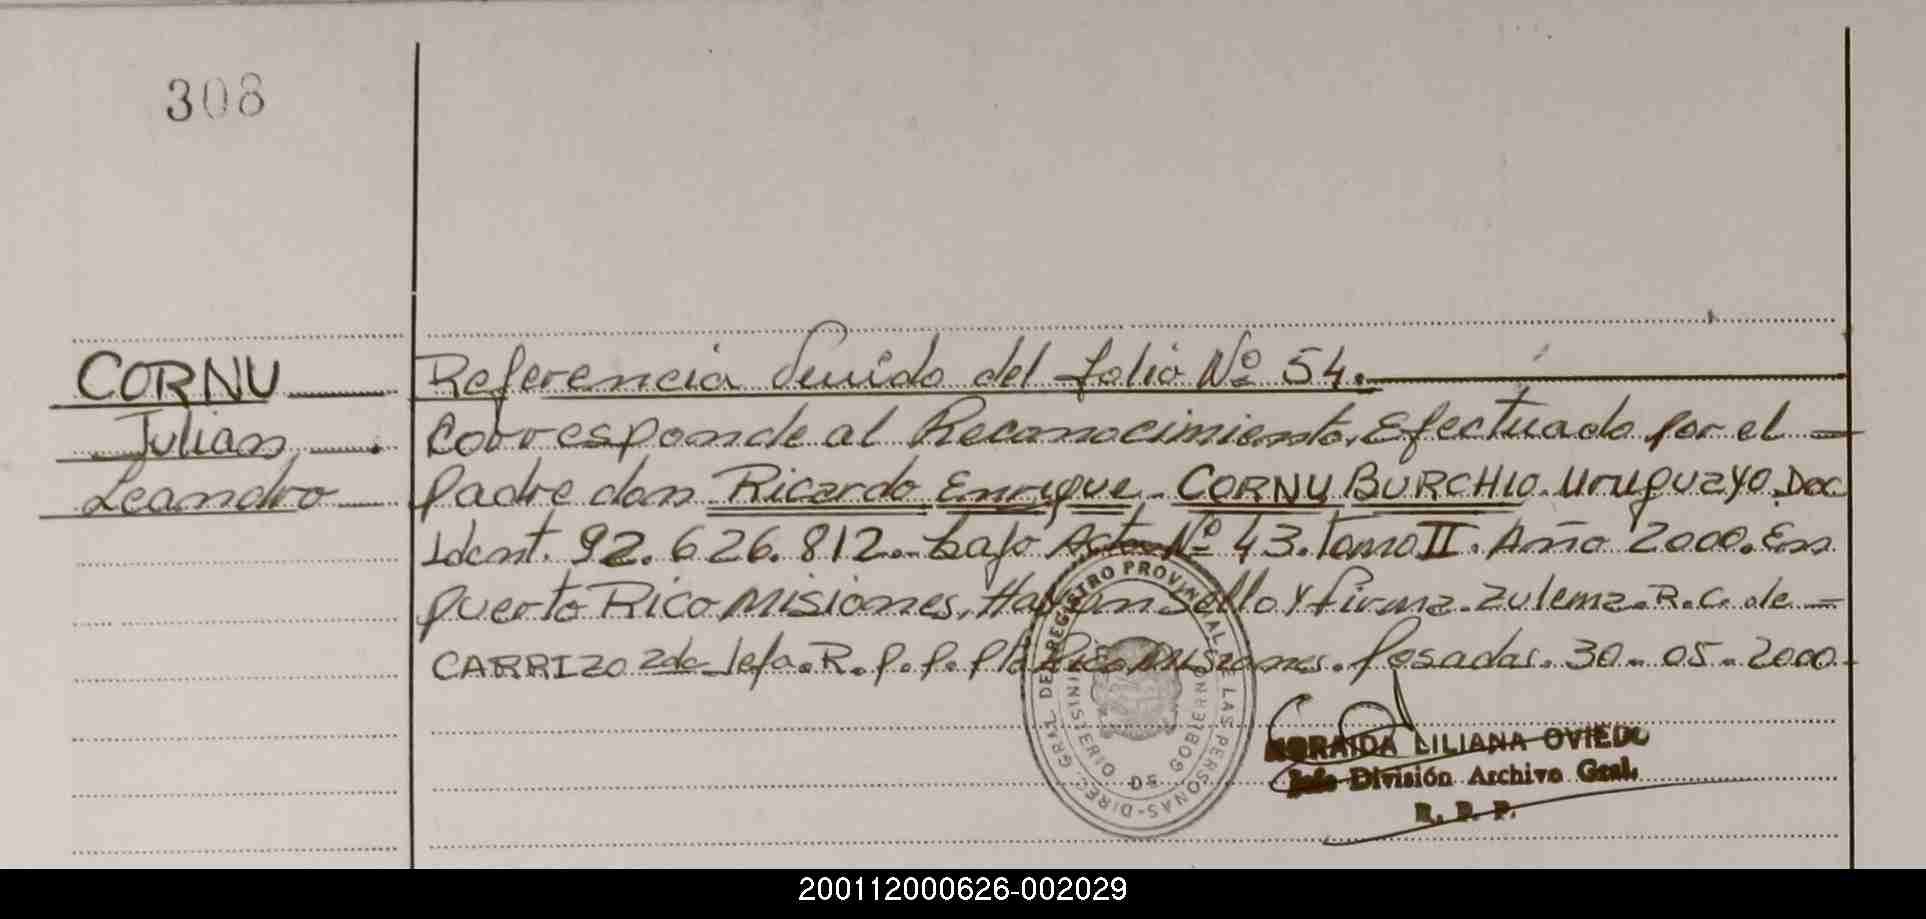 308
CORNU
Julian
Leandro
Referencia Venido del folio Nº 54.
Corresponde al Reconocimiento, Efectuado por el
padre don Ricardo Enrique CORNU BURCHIO. Uruguayo. Doc
Ident. 92.626.812. bajo Acta Nº 43. Tomo II. Año 2000. En
Puerto Rico Misiones. Hay un Sello y firma. Zulema. R. C. de
CARRIZO 2da Jefa. R. P. P. Pto Rico Misiones. Posadas. 30-05-2000
DIREC. GRAL. DEL REGISTRO PROVINCIAL DE LAS PERSONAS
MINISTERIO DE GOBIERNO
LILIANA OVIEDO
Jefe División Archivo Gral.
R. P. P.
200112000626-002029